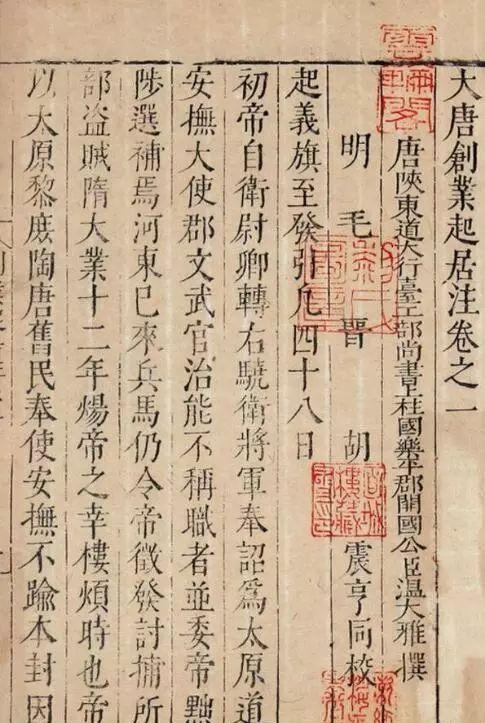 大唐創業起居注卷之一
唐陝東道大行臺工部尚書上柱國樂平郡開國公臣溫大雅撰
明毛晉胡震亨同校
起義旗至發引凡四十八日
初帝自衛尉卿轉右驍衛將軍奉詔爲太原道
安撫大使郡文武官治能不稱職者並委帝黜
陟選補焉河東已來兵馬仍令帝徵發討捕所
部盜賊隋大業十二年煬帝之幸樓煩時也帝
以太原黎庶陶唐舊民奉使安撫不踰本封因